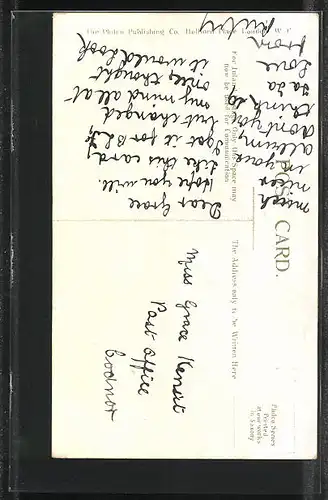 The Philco Publishing Co. Holborn Place London W. C.
POST CARD.
For Inland Postage only this Space may
now be used for Communication
The Address only to be Written Here
Philco Series
Printed
at our works
in Saxony
Dear Grace
Hope you will
like this card
I got it for
but changed
my mind all at
once thought
it would look
much
nicer
in your
album
don't you
think so
Ta Ta
Love
from
Miss Grace
Post Office
Codnor